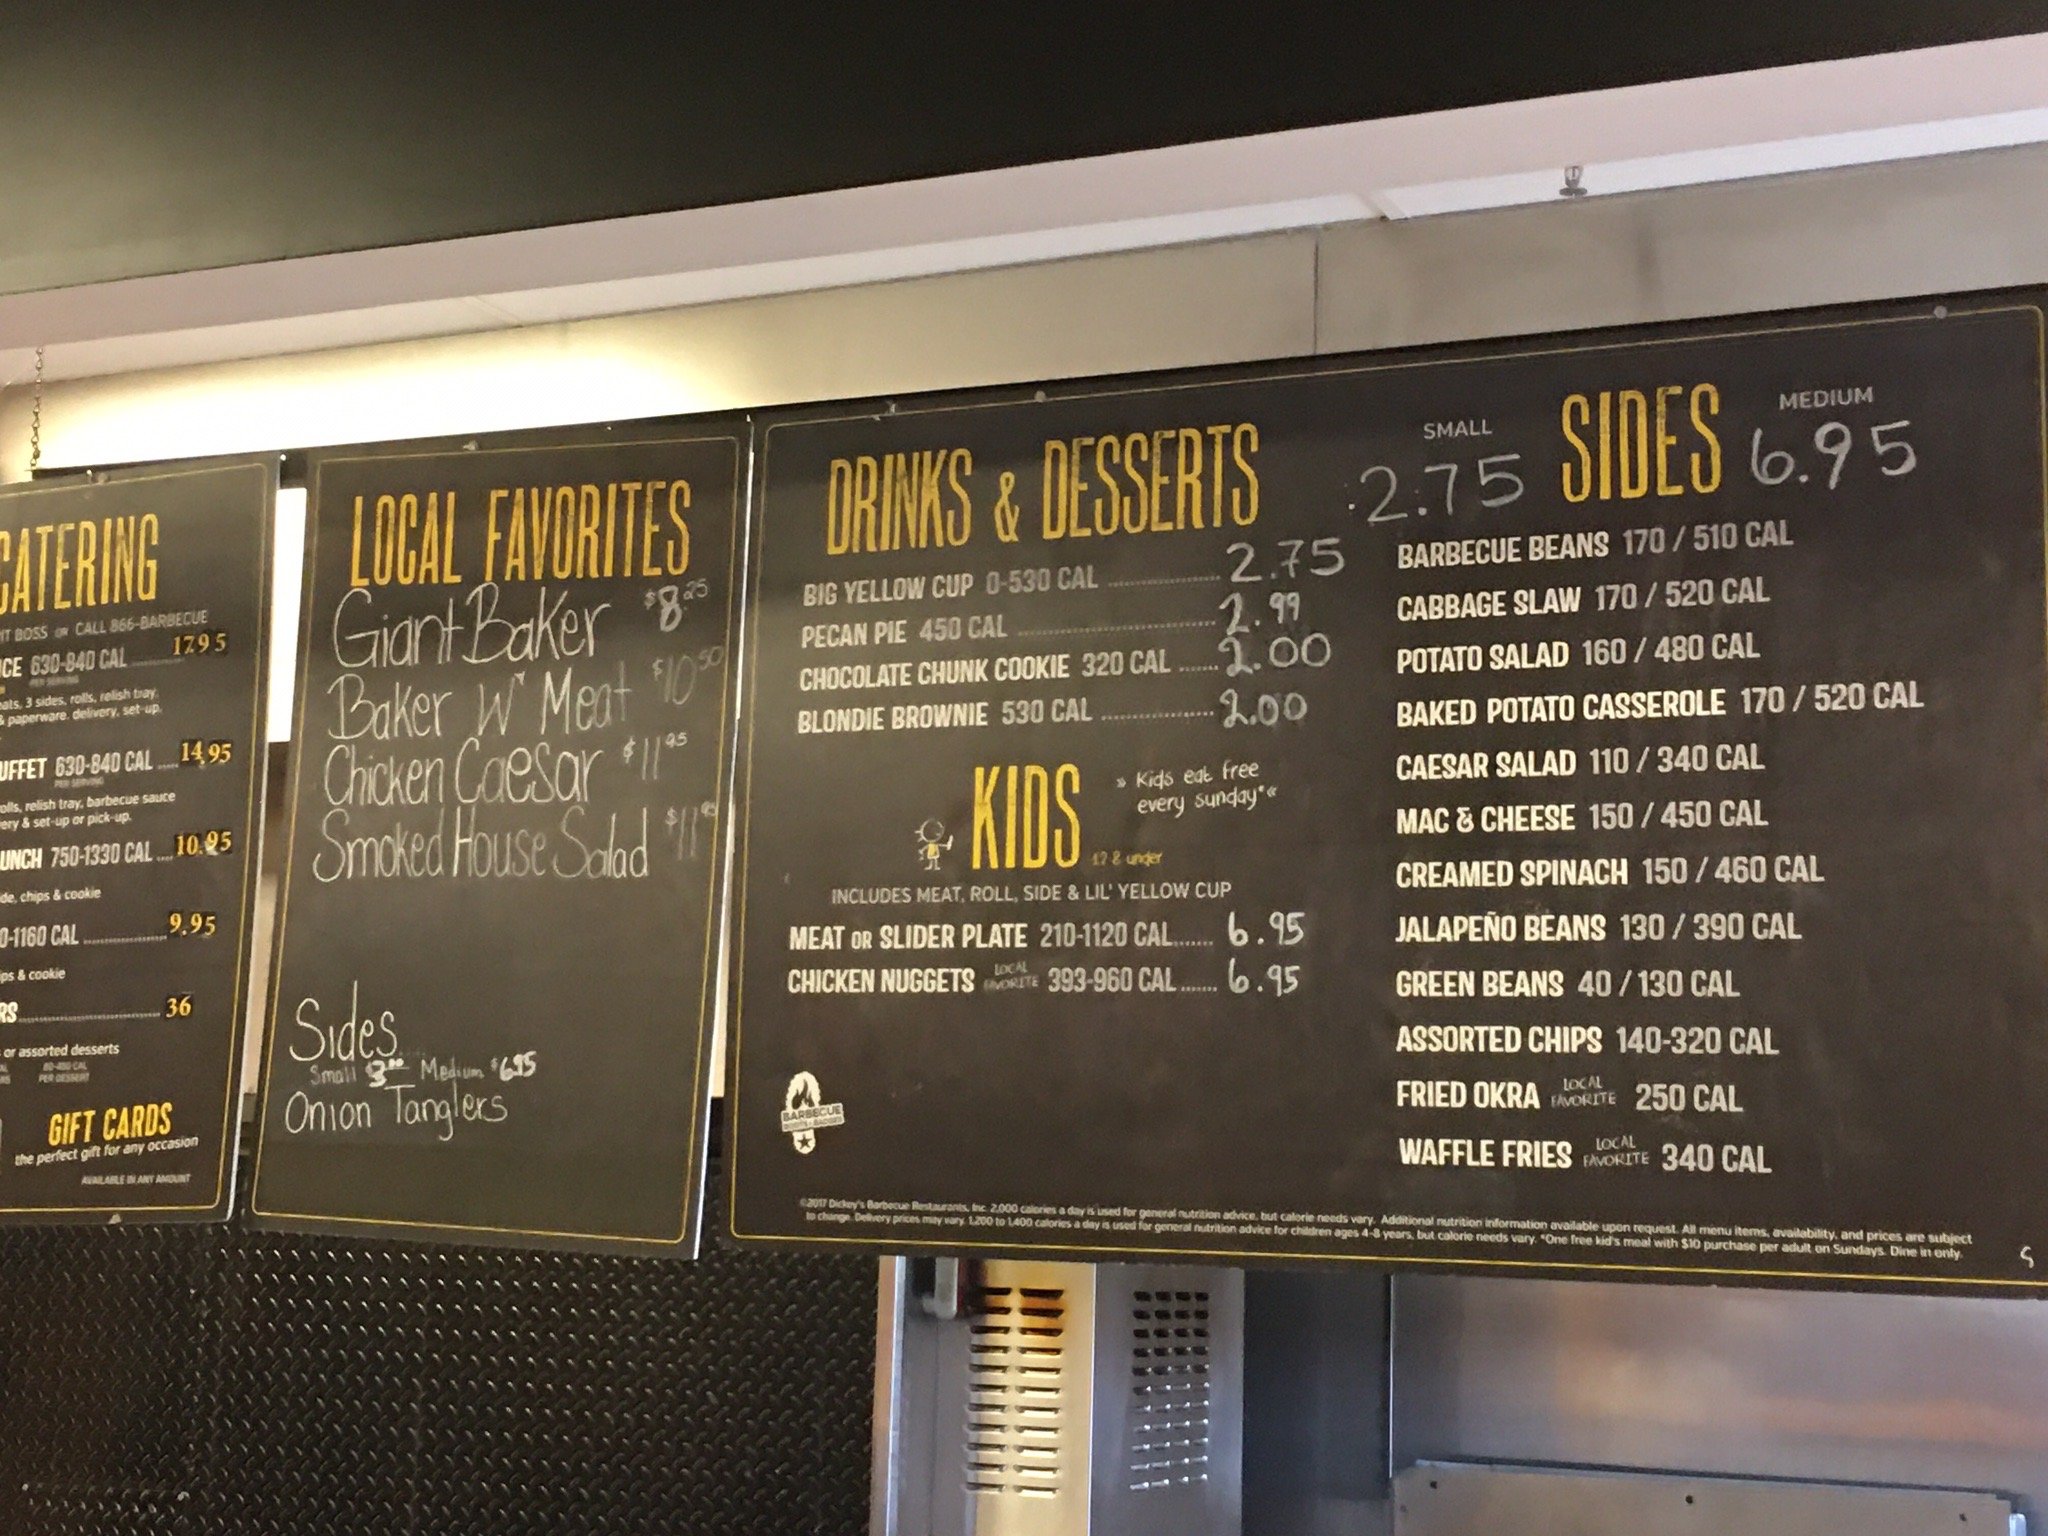 CATERING
NT BOSS OR CALL 866-BARBECUE
ICE 630-840 CAL 17.95
PER SERVING
eats, 3 sides, rolls, relish tray,
& paperware, delivery, set-up.
UFFET 630-840 CAL ..... 14.95
PER SERVING
olls, relish tray, barbecue sauce
ery & set-up or pick-up.
UNCH 750-1330 CAL .... 10.95
de, chips & cookie
0-1160 CAL ................. 9.95
ips & cookie
RS............................. 36
or assorted desserts
80-480 CAL
PER DESSERT
GIFT CARDS
the perfect gift for any occasion
AVAILABLE IN ANY AMOUNT
LOCAL FAVORITES
Giant Baker $8.25
Baker W' Meat $10.50
Chicken Caesar $11.95
Smoked House Salad $11.95
Sides
Small 3.00 Medium $6.95
Onion Tanglers
DRINKS & DESSERTS
BIG YELLOW CUP 0-530 CAL .................... 2.75
PECAN PIE 450 CAL .................................... 2.99
CHOCOLATE CHUNK COOKIE 320 CAL ....... 2.00
BLONDIE BROWNIE 530 CAL .................... 2.00
KIDS
12 & under
» Kids eat free
every sunday*«
INCLUDES MEAT, ROLL, SIDE & LIL' YELLOW CUP
MEAT OR SLIDER PLATE 210-1120 CAL....... 6.95
CHICKEN NUGGETS LOCAL FAVORITE 393-960 CAL ....... 6.95
BARBECUE
SMALL SIDES MEDIUM
2.75 6.95
BARBECUE BEANS 170 / 510 CAL
CABBAGE SLAW 170 / 520 CAL
POTATO SALAD 160 / 480 CAL
BAKED POTATO CASSEROLE 170 / 520 CAL
CAESAR SALAD 110 / 340 CAL
MAC & CHEESE 150 / 450 CAL
CREAMED SPINACH 150 / 460 CAL
JALAPEÑO BEANS 130 / 390 CAL
GREEN BEANS 40 / 130 CAL
ASSORTED CHIPS 140-320 CAL
FRIED OKRA LOCAL FAVORITE 250 CAL
WAFFLE FRIES LOCAL FAVORITE 340 CAL
©2017 Dickey's Barbecue Restaurants, Inc. 2,000 calories a day is used for general nutrition advice, but calorie needs vary. Additional nutrition information available upon request. All menu items, availability, and prices are subject
to change. Delivery prices may vary. 1,200 to 1,400 calories a day is used for general nutrition advice for children ages 4-8 years, but calorie needs vary. *One free kid's meal with $10 purchase per adult on Sundays. Dine in only.
S